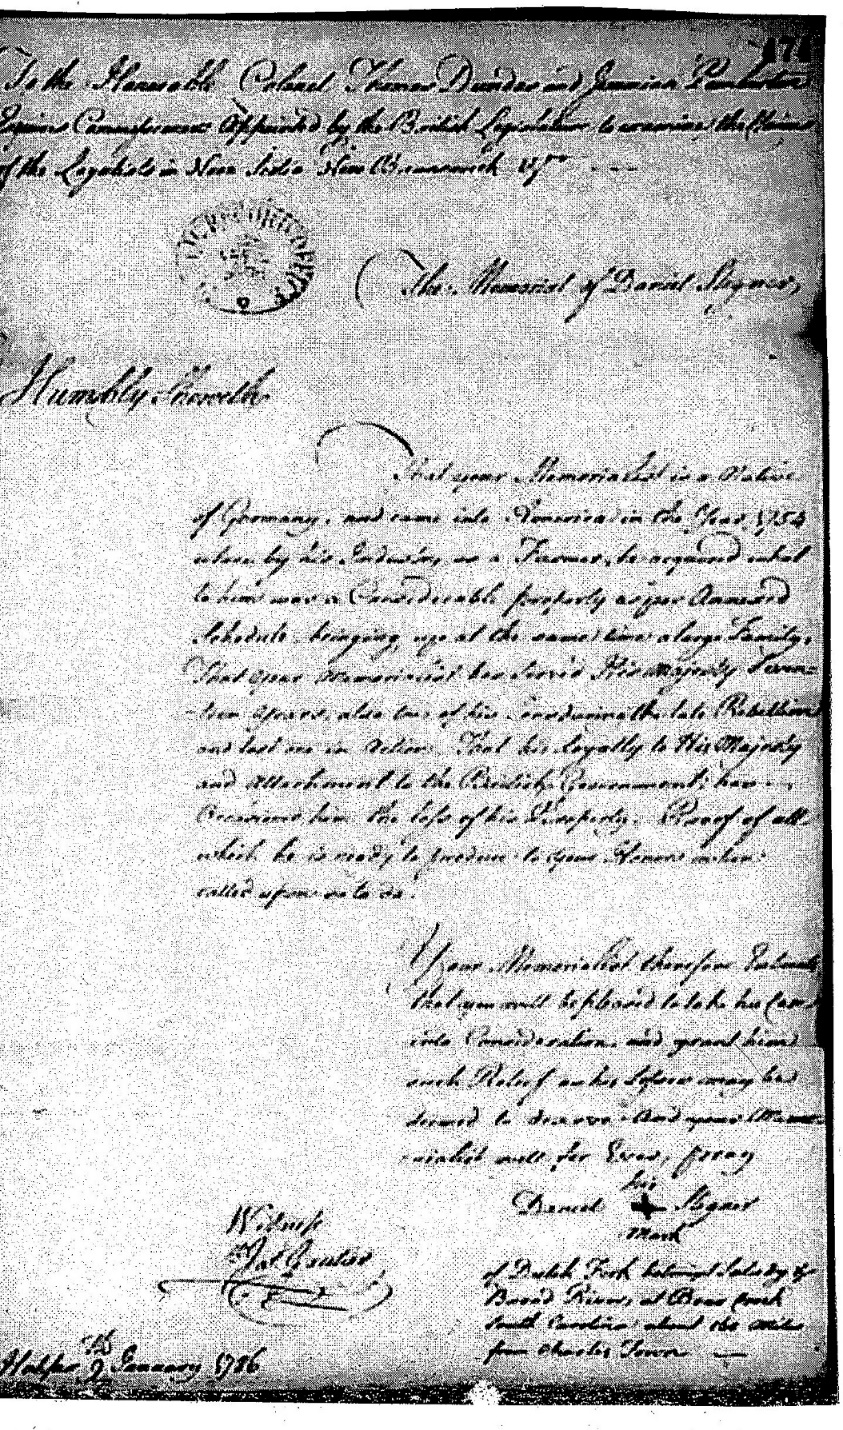 171
To the Honorable Colonel Thomas Dundas and Jeremiah Pemberton
Esquires Commissioners Appointed by the British Legislature to examine the Claims
of the Loyalists in Nova Scotia New Brunswick
PUBLIC RECORD OFFICE
The Memorial of Daniel Stegner,
Humbly Sheweth
That your Memorialist is a Native
of Germany, and came into America in the Year 1754
where by his Industry as a Farmer, he acquired what
to him was a Considerable property as per Annexed
Schedule bringing up at the same time a large Family.
That your Memorialist has Serv'd His Majesty Seven-
-teen Years, also two of his Sons during the late Rebellion
and lost one in Action. That his Loyalty to His Majesty
and Attachment to the British Government, has
Occasion'd him the loss of his Property. Proof of all
which he is ready to produce to your Honors when
called upon so to do.
Your Memorialist therefore Entreats
that you will be pleased to take his Case
into Consideration, and grant him
such Relief as his Losses may be
deemed to deserve. And your Memo-
-rialist will for Ever, pray
his
Daniel + Stegner
mark
Witness
Gautier
of Dutch Fork between Saludy &
Broad River, at Bear Creek
South Carolina about 120 Miles
from Charles Town
Halifax 9th January 1786